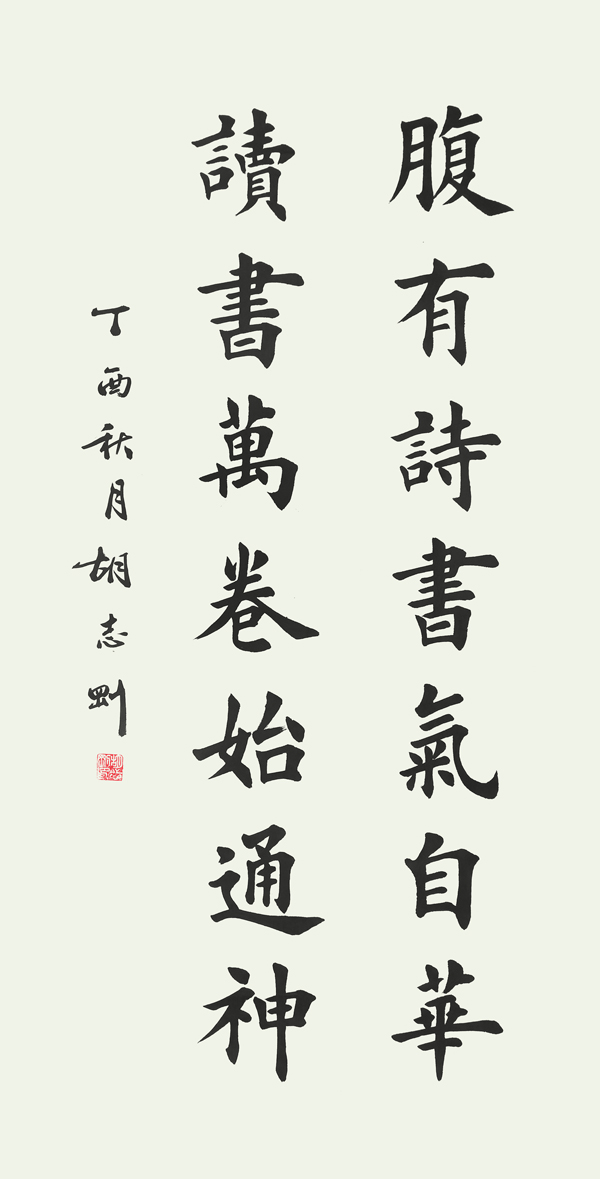 腹有詩書氣自華
讀書萬卷始通神
丁酉秋月胡志剛